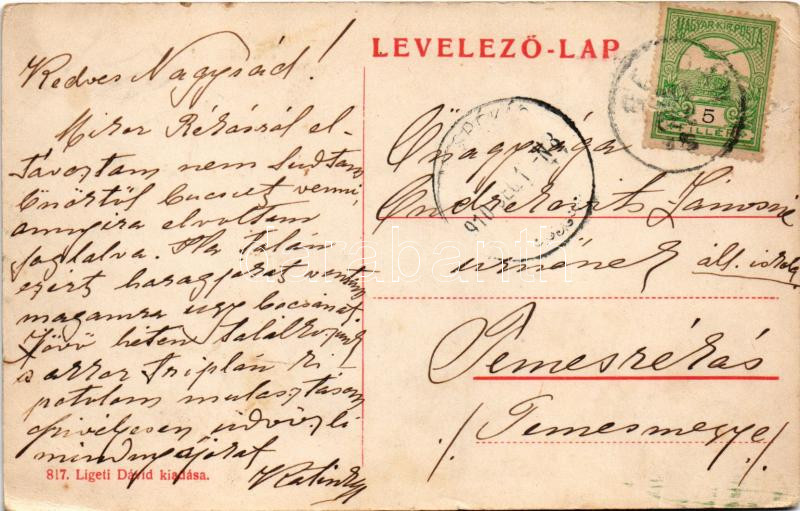 LEVELEZŐ-LAP
MAGYAR·KIR·POSTA
5
FILLÉR
Kedves Nagysád!
Mikor Rékásról el-
távoztam nem tudtam
Önöktől bucsut venni
annyira elvoltam
foglalva. Ha talán
ezért haragjokat vontam
magamra ugy bocsánat.
Jövő héten találkozunk
s akkor triplán ki
potolom mulasztásom
Szivélyesen üdvözli
mindnyájokat
Őnagysága
Endrekovits Jánosné
urnőnek áll. iskola
Temesrékás
/Temesmegye/
910
817. Ligeti Dávid kiadása.
darabanth